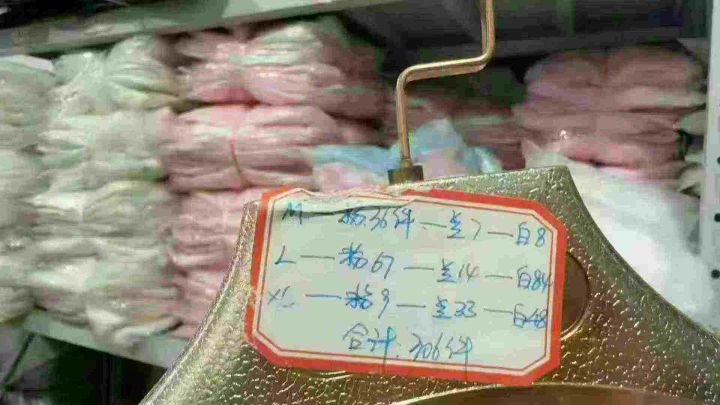 M—粉36件—兰7—白8
L—粉67—兰14—白84
XL—粉9—兰33—白48
合计:306件